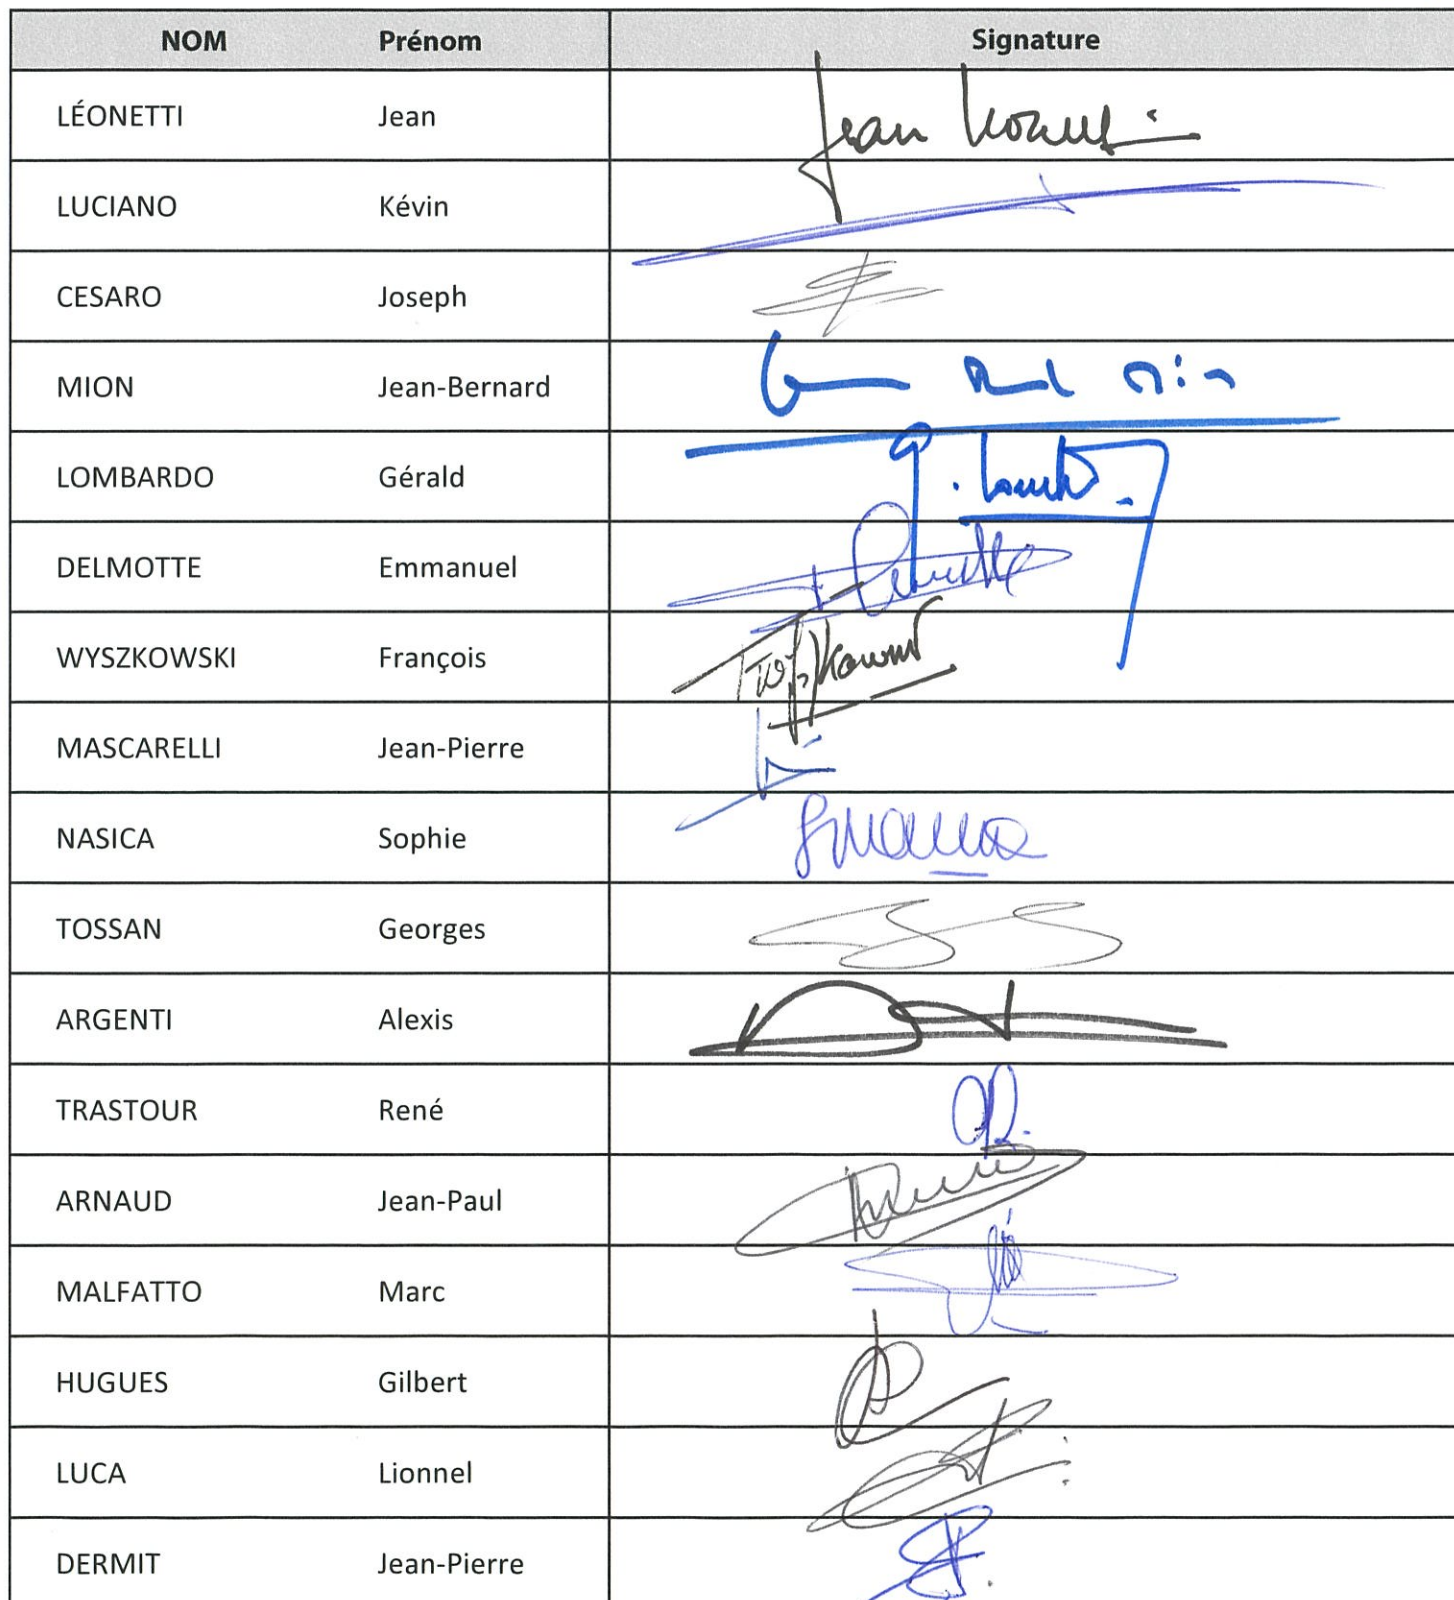 NOM Prénom Signature
LÉONETTI Jean Jean Leonetti
LUCIANO Kévin
CESARO Joseph
MION Jean-Bernard
LOMBARDO Gérald
DELMOTTE Emmanuel
WYSZKOWSKI François
MASCARELLI Jean-Pierre
NASICA Sophie
TOSSAN Georges
ARGENTI Alexis
TRASTOUR René
ARNAUD Jean-Paul
MALFATTO Marc
HUGUES Gilbert
LUCA Lionnel
DERMIT Jean-Pierre